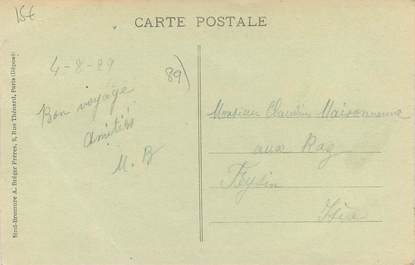 15€
CARTE POSTALE
4-8-29
89)
Bon voyage
Amitiés
M. B
Monsieur Claudin Maisonneuve
aux Raz
Feysin
Isère
Sind-Brennore A. Breger Frères, 9, Rue Thénard, Paris (Dépose)